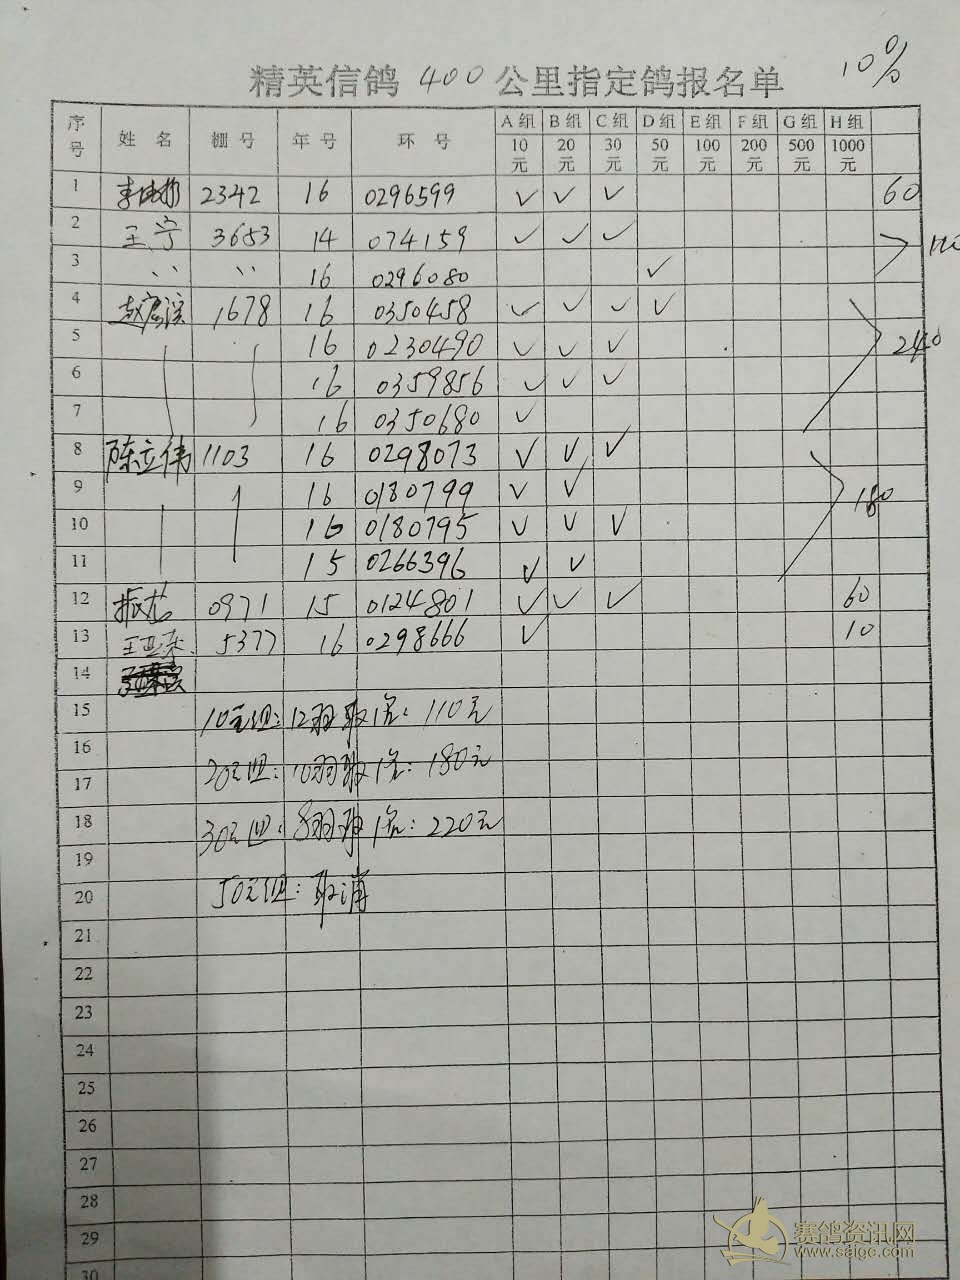 精英信鸽 400 公里指定鸽报名单 10%
序号 姓名 棚号 年号 环号 A组 B组 C组 D组 E组 F组 G组 H组
10元 20元 30元 50元 100元 200元 500元 1000元
1 2342 16 0296599 ✓ ✓ ✓ 60
2 王宁 3653 14 0741159 ✓ ✓ ✓
3 〃 〃 16 0296080 ✓
4 1678 16 0350458 ✓ ✓ ✓ ✓
5 16 0230490 ✓ ✓ ✓ 240
6 16 0359856 ✓ ✓ ✓
7 16 0350680 ✓
8 陈立伟 1103 16 0298073 ✓ ✓ ✓
9 16 0180799 ✓ ✓ 180
10 16 0180795 ✓ ✓ ✓
11 15 0266396 ✓ ✓
12 振龙 0971 15 0124801 ✓ ✓ ✓ 60
13 王亚东 5377 16 0298666 ✓ 10
14
15 10元组:12羽取1名:110元
16
17 20元组:10羽取1名:180元
18 30元组:8羽取1名:220元
19
20 50元组:取消
21
22
23
24
25
26
27
28
29
30
赛鸽资讯网
www.saige.com